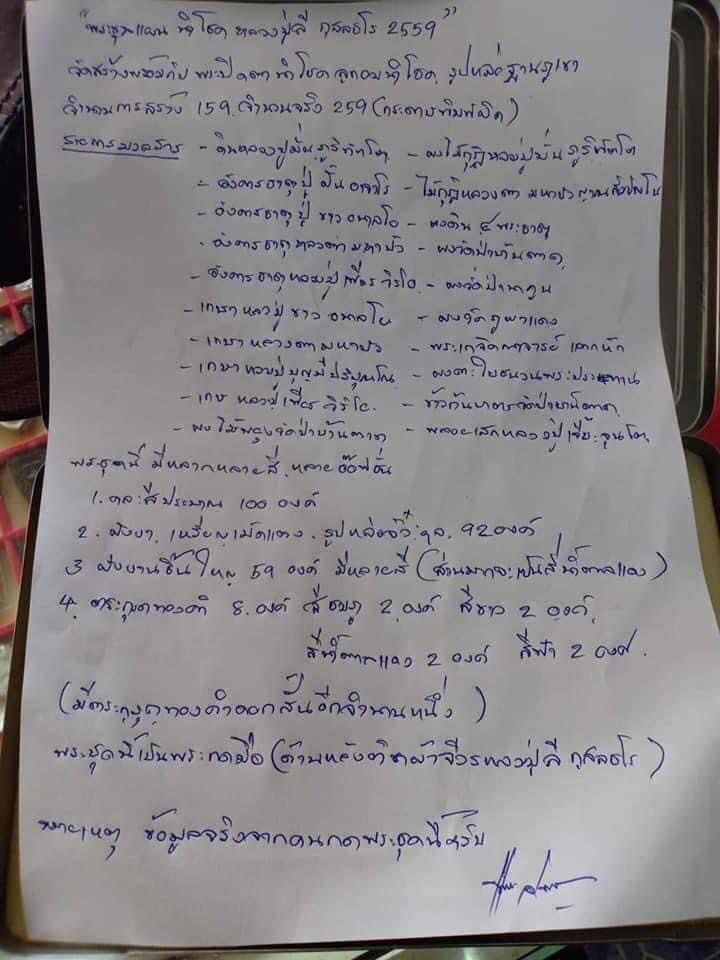 "พระขุนแผน นำโชค หลวงปู่ลี กุสลธโร 2559"
จัดสร้างพร้อมกับ พระปิดตานำโชค ลูกอมนำโชค รูปหล่อฐานภูเขา
จำนวนการสร้าง 159 จำนวนจริง 259 (กระดาษพิมพ์ผิด)
รายการมวลสาร - ดินหลวงปู่มั่น ภูริทัตโต - ผงไม้กุฏิหลวงปู่มั่น ภูริทัตโต
- อังคารธาตุปู่ มั่น - ไม้กุฏิหลวงตา มหาบัว ญาณสัมปันโน
- อังคารธาตุปู่ ขาว อนาลโย - ผงดิน ๔ พระธาตุ
- อังคารธาตุหลวงตามหาบัว - ผงวัดป่าบ้านตาด
- อังคารธาตุหลวงปู่เพียร วิริโย - ผงวัดป่านาคูณ
- เกษาหลวงปู่ ขาว อนาลโย - ผงวัดภูผาแดง
- เกษา หลวงตามหาบัว - พระเกจิคณาจารย์ แตกหัก
- เกษา หลวงปู่บุญมี ปริปุณโณ - ผงตะไบชนวนพระประธาน
- เกษา หลวงปู่เพียร วิริโย - ข้าวก้นบาตรวัดป่าบ้านตาด
- ผงไม้พยุงวัดป่าบ้านตาด - พลอยเสกหลวงปู่เจี๊ยะ จุนโท
พระชุดนี้ มีหลากหลายสี หลายอ๊อฟชั่น
1. คละสีประมาณ 100 องค์
2. ฝังยา เหรียญเม็ดแตง รูปหล่อจิ๋ว คละ 92 องค์
3 ฝังยาชิ้นใหญ่ 59 องค์ มีหลายสี (ส่วนมากจะเป็นสีน้ำตาลแดง)
4. ตระกรุดทองคำ 8 องค์ สีชมพู 2 องค์ สีขาว 2 องค์
สีน้ำตาลแดง 2 องค์ สีฟ้า 2 องค์
(มีตระกรุดทองคำดอกสั้นอีกจำนวนหนึ่ง)
พระชุดนี้เป็นพระกดมือ (ด้านหลังติดผ้าจีวรหลวงปู่ลี กุสลธโร)
หมายเหตุ ข้อมูลจริงจากคนกดพระชุดนี้ครับ